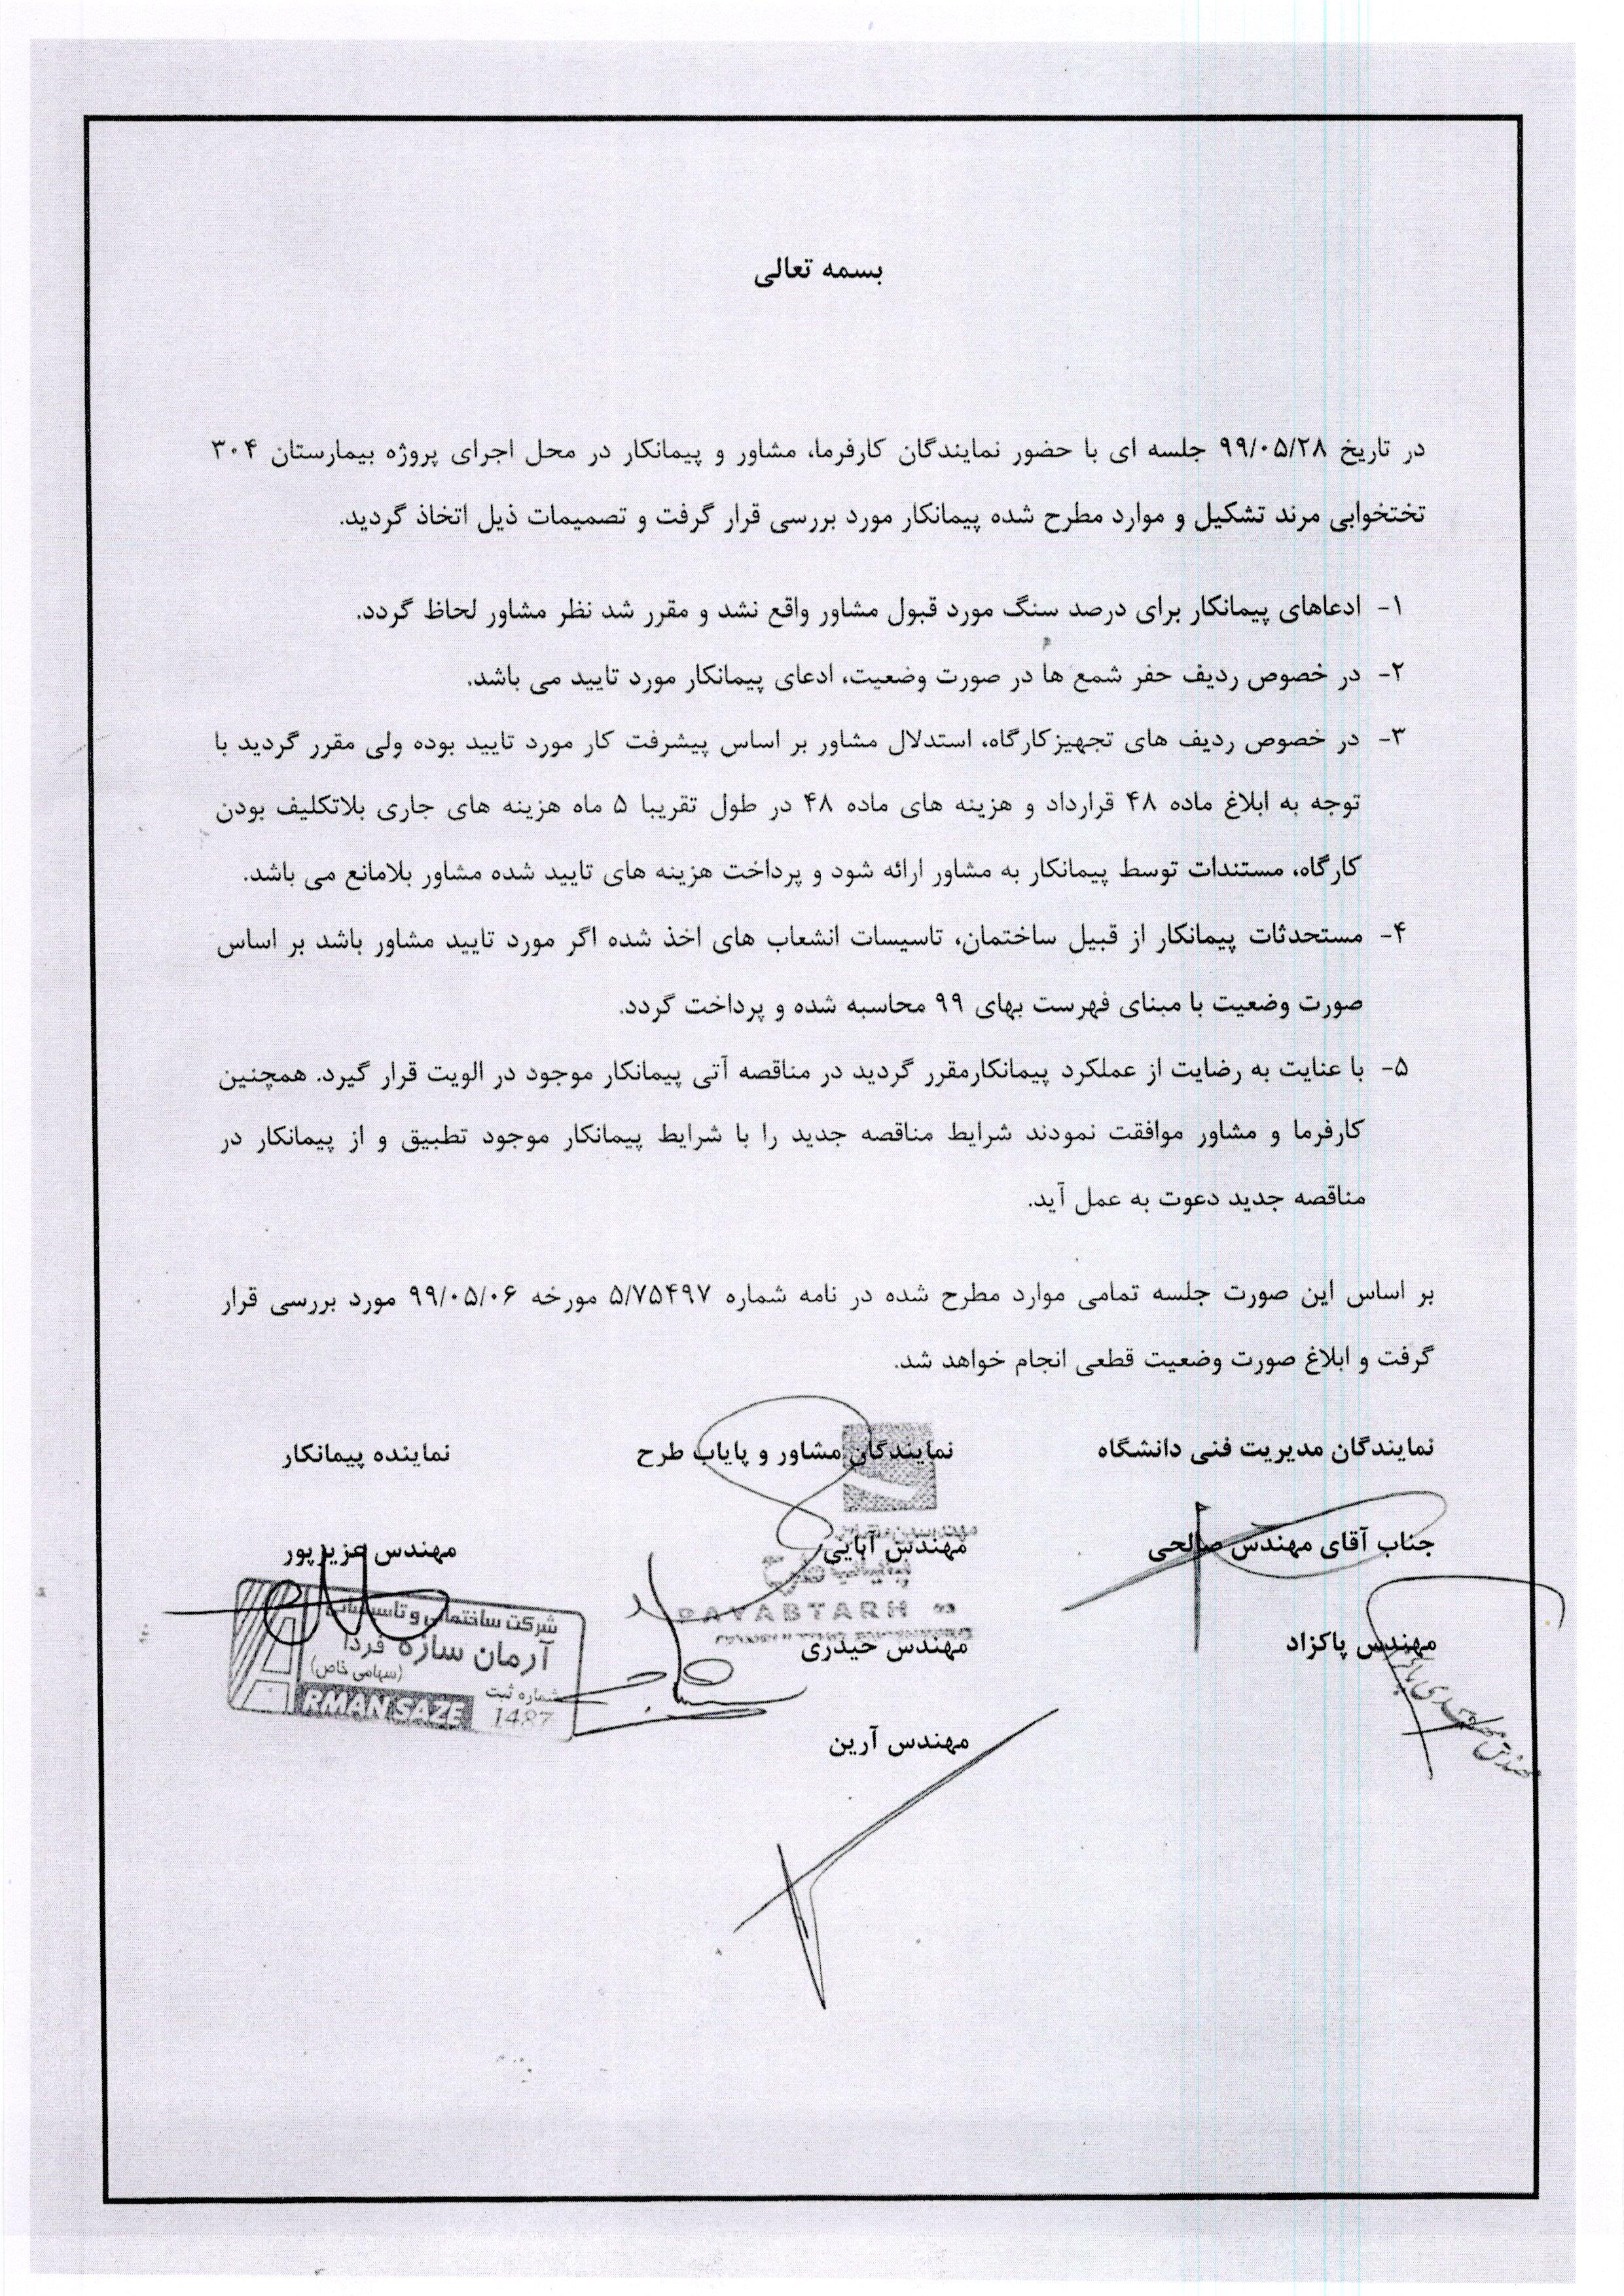 بسمه تعالی
در تاریخ ۹۹/۰۵/۲۸ جلسه ای با حضور نمایندگان کارفرما، مشاور و پیمانکار در محل اجرای پروژه بیمارستان ۳۰۴
تختخوابی مرند تشکیل و موارد مطرح شده پیمانکار مورد بررسی قرار گرفت و تصمیمات ذیل اتخاذ گردید.
۱- ادعاهای پیمانکار برای درصد سنگ مورد قبول مشاور واقع نشد و مقرر شد نظر مشاور لحاظ گردد.
۲- در خصوص ردیف حفر شمع ها در صورت وضعیت، ادعای پیمانکار مورد تایید می باشد.
۳- در خصوص ردیف های تجهیزکارگاه، استدلال مشاور بر اساس پیشرفت کار مورد تایید بوده ولی مقرر گردید با
توجه به ابلاغ ماده ۴۸ قرارداد و هزینه های ماده ۴۸ در طول تقریبا ۵ ماه هزینه های جاری بلاتکلیف بودن
کارگاه، مستندات توسط پیمانکار به مشاور ارائه شود و پرداخت هزینه های تایید شده مشاور بلامانع می باشد.
۴- مستحدثات پیمانکار از قبیل ساختمان، تاسیسات انشعاب های اخذ شده اگر مورد تایید مشاور باشد بر اساس
صورت وضعیت با مبنای فهرست بهای ۹۹ محاسبه شده و پرداخت گردد.
۵- با عنایت به رضایت از عملکرد پیمانکارمقرر گردید در مناقصه آتی پیمانکار موجود در الویت قرار گیرد. همچنین
کارفرما و مشاور موافقت نمودند شرایط مناقصه جدید را با شرایط پیمانکار موجود تطبیق و از پیمانکار در
مناقصه جدید دعوت به عمل آید.
بر اساس این صورت جلسه تمامی موارد مطرح شده در نامه شماره ۵/۷۵۴۹۷ مورخه ۹۹/۰۵/۰۶ مورد بررسی قرار
گرفت و ابلاغ صورت وضعیت قطعی انجام خواهد شد.
نمایندگان مدیریت فنی دانشگاه نمایندگان مشاور و پایاب طرح نماینده پیمانکار
جناب آقای مهندس صالحی مهندس آبایی مهندس عزیزپور
مهندس پاکزاد مهندس حیدری
مهندس آرین
پایاب طرح
PAYABTARH
شرکت ساختمانی و تاسیساتی
آرمان سازه فردا
(سهامی خاص)
شماره ثبت
ARMAN SAZE 1487